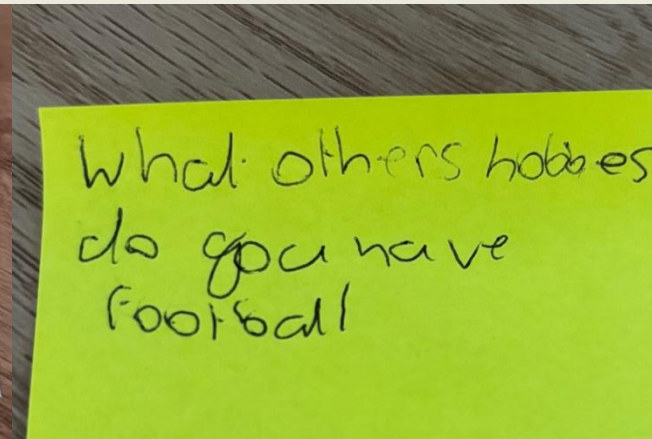 What others hobbes
do you have
football